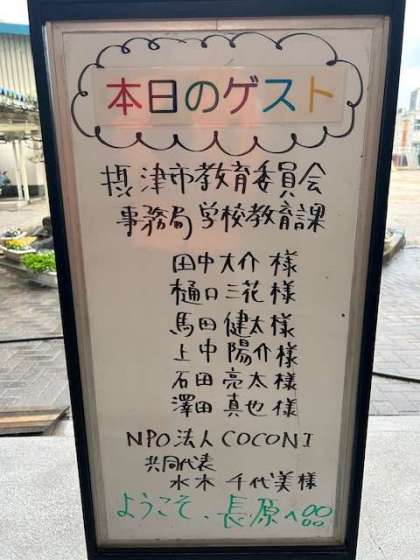 本日のゲスト
摂津市教育委員会
事務局学校教育課
田中大介様
樋口三花様
馬田健太様
上中陽介様
石田亮太様
澤田真也様
NPO法人COCONI
共同代表
水木千代美様
ようこそ、長原へ